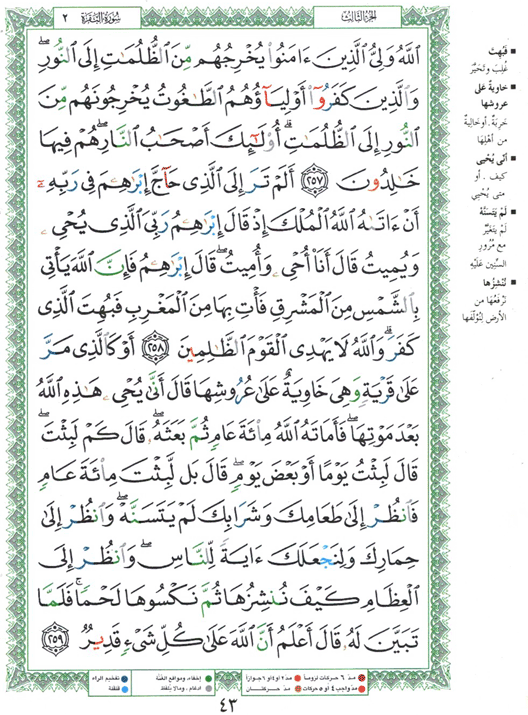 الجزء الثالث
سورة البقرة ٢
اللَّهُ وَلِيُّ الَّذِينَ ءَامَنُوا يُخْرِجُهُم مِّنَ الظُّلُمَاتِ إِلَى النُّورِ ۖ
وَالَّذِينَ كَفَرُوا أَوْلِيَاؤُهُمُ الطَّاغُوتُ يُخْرِجُونَهُم مِّنَ
النُّورِ إِلَى الظُّلُمَاتِ ۗ أُولَٰئِكَ أَصْحَابُ النَّارِ ۖ هُمْ فِيهَا
خَالِدُونَ ٢٥٧ أَلَمْ تَرَ إِلَى الَّذِي حَاجَّ إِبْرَاهِمَ فِي رَبِّهِ
أَنْ ءَاتَاهُ اللَّهُ الْمُلْكَ إِذْ قَالَ إِبْرَاهِمُ رَبِّيَ الَّذِي يُحْيِ
وَيُمِيتُ قَالَ أَنَا أُحْيِ وَأُمِيتُ ۖ قَالَ إِبْرَاهِمُ فَإِنَّ اللَّهَ يَأْتِي
بِالشَّمْسِ مِنَ الْمَشْرِقِ فَأْتِ بِهَا مِنَ الْمَغْرِبِ فَبُهِتَ الَّذِي
كَفَرَ ۗ وَاللَّهُ لَا يَهْدِي الْقَوْمَ الظَّالِمِينَ ٢٥٨ أَوْ كَالَّذِي مَرَّ
عَلَىٰ قَرْيَةٍ وَهِيَ خَاوِيَةٌ عَلَىٰ عُرُوشِهَا قَالَ أَنَّىٰ يُحْيِ هَٰذِهِ اللَّهُ
بَعْدَ مَوْتِهَا ۖ فَأَمَاتَهُ اللَّهُ مِائَةَ عَامٍ ثُمَّ بَعَثَهُ ۖ قَالَ كَمْ لَبِثْتَ ۖ
قَالَ لَبِثْتُ يَوْمًا أَوْ بَعْضَ يَوْمٍ ۖ قَالَ بَل لَّبِثْتَ مِائَةَ عَامٍ
فَانظُرْ إِلَىٰ طَعَامِكَ وَشَرَابِكَ لَمْ يَتَسَنَّهْ ۖ وَانظُرْ إِلَىٰ
حِمَارِكَ وَلِنَجْعَلَكَ ءَايَةً لِّلنَّاسِ ۖ وَانظُرْ إِلَى
الْعِظَامِ كَيْفَ نُنشِزُهَا ثُمَّ نَكْسُوهَا لَحْمًا ۚ فَلَمَّا
تَبَيَّنَ لَهُ قَالَ أَعْلَمُ أَنَّ اللَّهَ عَلَىٰ كُلِّ شَيْءٍ قَدِيرٌ ٢٥٩
فَبُهِتَ
غُلِبَ وتحيَّر
خاوية على
عروشها
خَرِبَةٌ. أو خالِيةٌ
من أهلِهَا
أنَّى يُحْيي
كيف . أو
متى يُحْيي
لَمْ يَتَسَنَّهْ
لَمْ يَتَغَيَّرْ
مع مُرُورِ
السِّنين عَلَيْه
نُنْشِزُها
نَرْفَعُهَا من
الأرض لِنُؤَلِّفَهَا
مدّ ٦ حركات لزوماً
مدّ ٢ أو ٤ أو ٦ جوازاً
مدّ واجب ٤ أو ٥ حركات
مدّ حركتان
إخفاء، ومواقع الغُنَّة
إدغام، وما لا يُلفظ
تفخيم الراء
قلقلة
٤٣